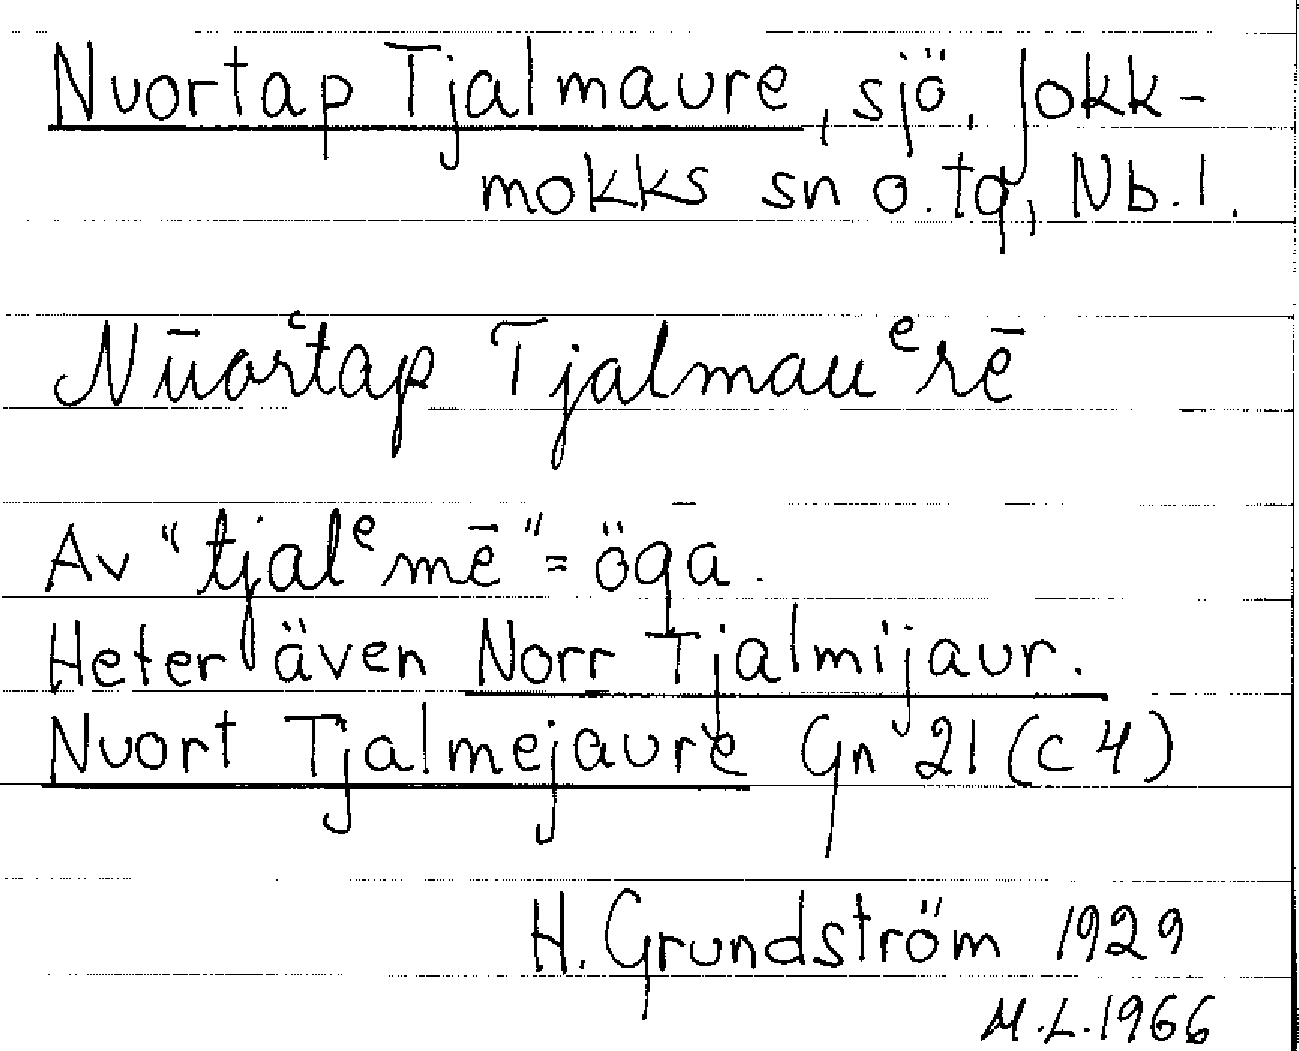 Nuortap Tjalmaure, sjö, Jokk-
mokks sn o. tg, Nb. l.
Nūorʿtap Tjalmauᵉrē
Av "tjalᵉmē" = öga.
Heter även Norr Tjalmijaur.
Nuort Tjalmejaure Gn 21 (C 4)
H. Grundström 1929
M.L. 1966